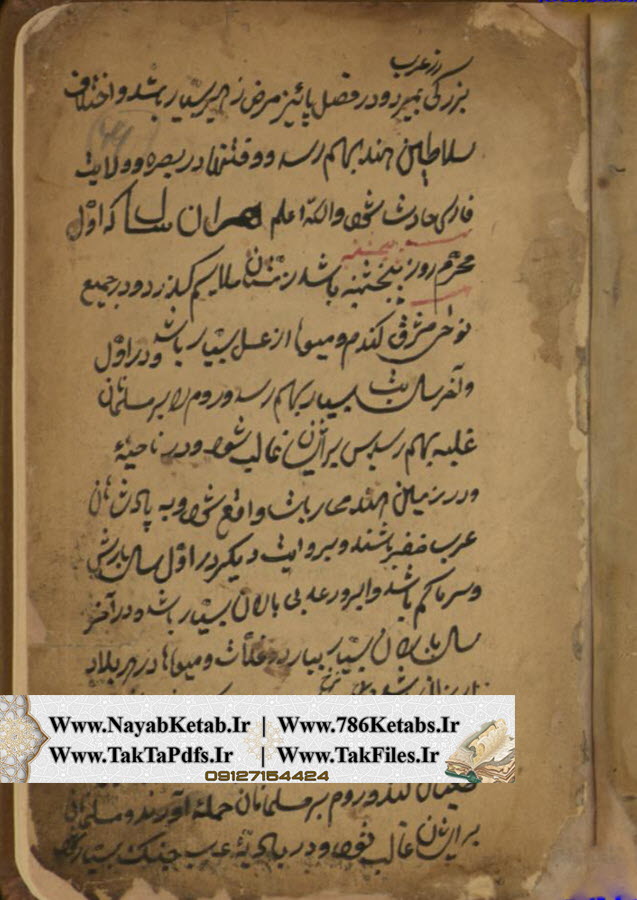 از عرب
بزرگی بمیرد و در فصل پائیز مرض زحیر بسیار باشد و اختلاف
سلاطین هند بهم رسد و فتنها در بصره و ولایت
فارس حادث شود والله اعلم هر سال که اول
محرم روز پنجشنبه باشد زمستان ملایم گذرد و در جمیع
نواحی مشرق گندم و میوها و عسل بسیار باشد و در اول
و آخر سال تب بسیار بهم رسد و روم را بر مسلمانان
غلبه بهم رسد پس بر ایشان غالب شود و در ناحیهٔ
و در زمین هند محاربات واقع شود و به پادشاهان
عرب ظفر باشند و بروایت دیگر در اول سال بارش
و سرما کم باشد و ابر و رعد بی باران بسیار باشد و در آخر
سال باران بسیار ببارد و غلات و میوها در هر بلاد
Www.NayabKetab.Ir | Www.786Ketabs.Ir
Www.TakTaPdfs.Ir | Www.TakFiles.Ir
09127154424
کند و روم بر مسلمانان حمله آورند و مسلمانان
بر ایشان غالب شود و در بادیهٔ عرب جنگ بسیار